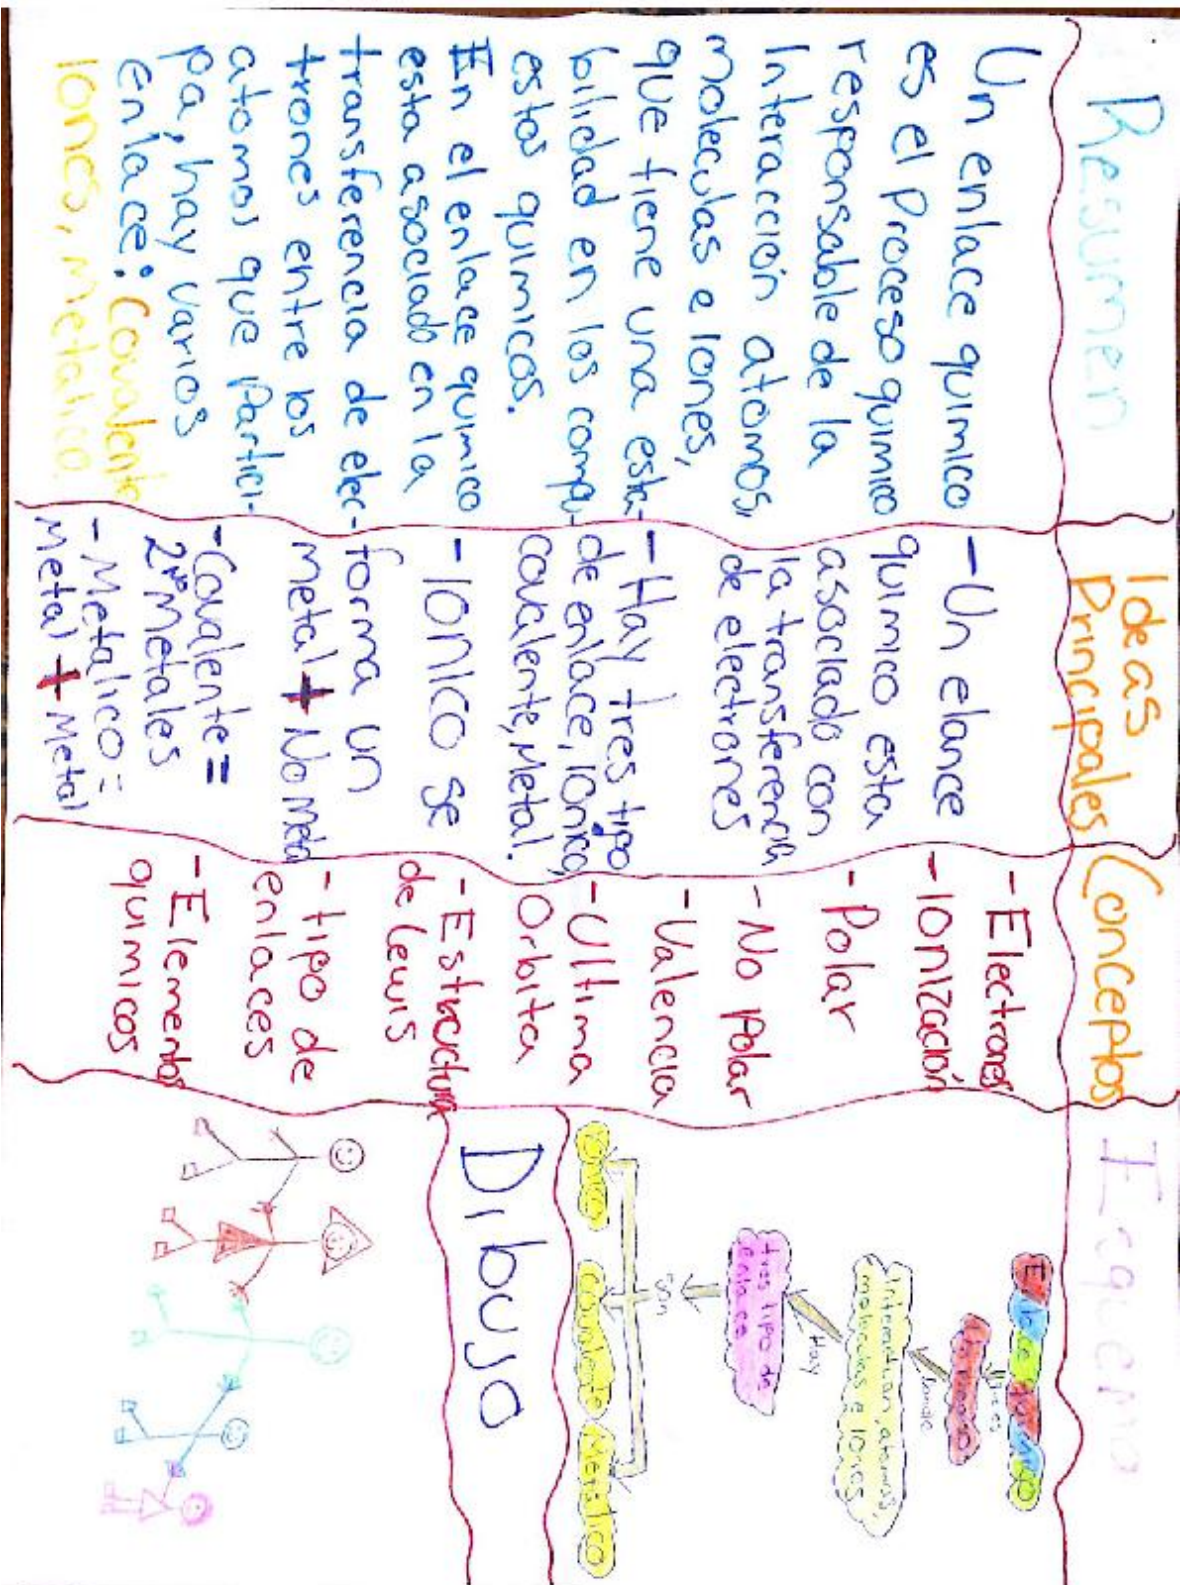 Resumen
Un enlace quimico
es el Proceso quimico
responsable de la
Interacción atomos,
moleculas e Iones,
que tiene una esta-
bilidad en los compu-
estos quimicos.
En el enlace quimico
esta asociado en la
transferencia de elec-
trones entre los
atomos que Partici-
pa, hay varios
enlace: Covalente
Iones, Metalico.
Ideas
Principales
- Un elance
quimico esta
asociado con
la transferencia
de electrones
- Hay tres tipo
de enlace, Ionico,
covalente, Metal.
- IONICO se
forma un
metal + No Metal
- Covalente =
2 no Metales
- Metalico =
Metal + Metal
Conceptos
- Electrones
- Ionización
- Polar
- No Polar
- Valencia
- Ultima
Orbita
- Estructura
de Lewis
- tipo de
enlaces
- Elementos
quimicos
Esquema
Enlace Químico
es
Un Proceso
donde
Interactuan, atomos,
moleculas e Iones,
Hay
tres tipo de
enlace
Son
Ionico Covalente Metalico
Dibujo